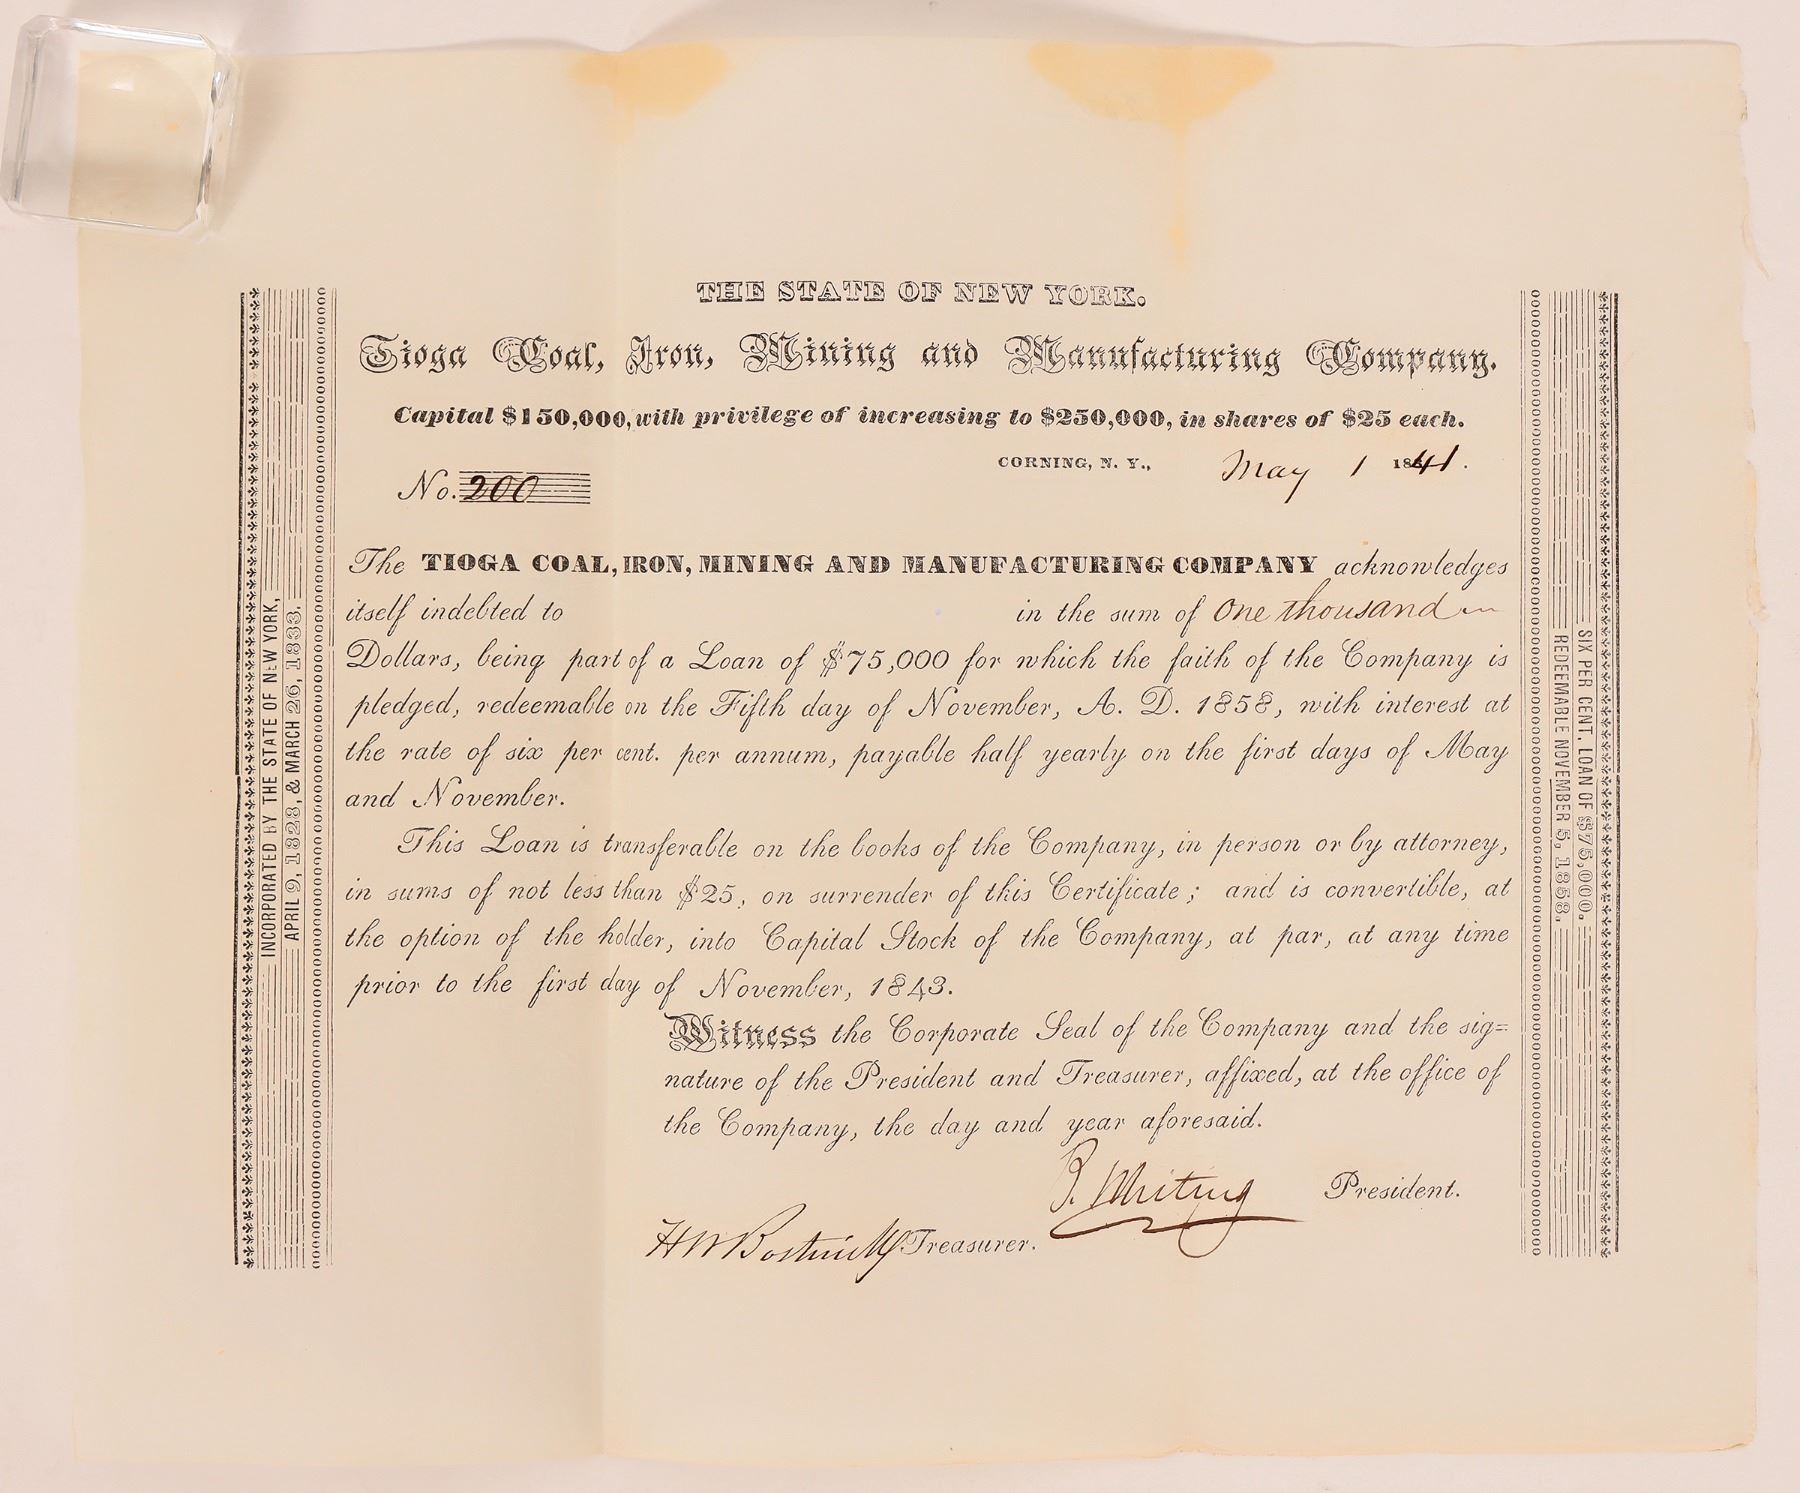 THE STATE OF NEW YORK.
Tioga Coal, Iron, Mining and Manufacturing Company.
Capital $150,000, with privilege of increasing to $250,000, in shares of $25 each.
CORNING, N. Y., May 1 1841.
No. 200
The TIOGA COAL, IRON, MINING AND MANUFACTURING COMPANY acknowledges
itself indebted to in the sum of One thousand
Dollars, being part of a Loan of $75,000 for which the faith of the Company is
pledged, redeemable on the Fifth day of November, A. D. 1858, with interest at
the rate of six per cent. per annum, payable half yearly on the first days of May
and November.
This Loan is transferable on the books of the Company, in person or by attorney,
in sums of not less than $25, on surrender of this Certificate; and is convertible, at
the option of the holder, into Capital Stock of the Company, at par, at any time
prior to the first day of November, 1843.
Witness the Corporate Seal of the Company and the sig=
nature of the President and Treasurer, affixed, at the office of
the Company, the day and year aforesaid.
B. Whiting President.
H W Bostwick Treasurer.
INCORPORATED BY THE STATE OF NEW YORK,
APRIL 9, 1828, & MARCH 26, 1833.
SIX PER CENT. LOAN OF $75,000.
REDEEMABLE NOVEMBER 5, 1858.